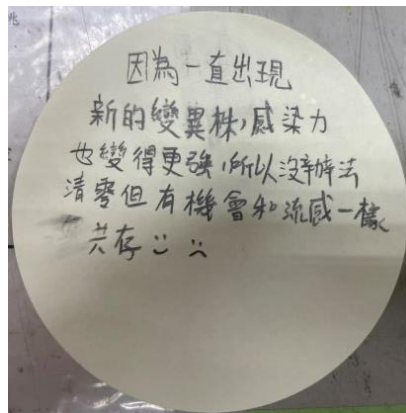 因為一直出現
新的變異株,感染力
也變得更強,所以沒辦法
清零但有機會和流感一樣
共存:) :(